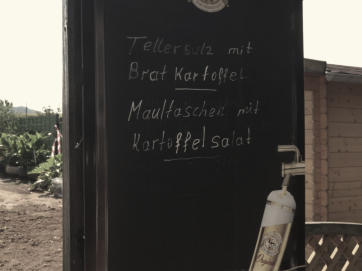 Tellersulz mit
Brat Kartoffel
Maultaschen mit
Kartoffelsalat